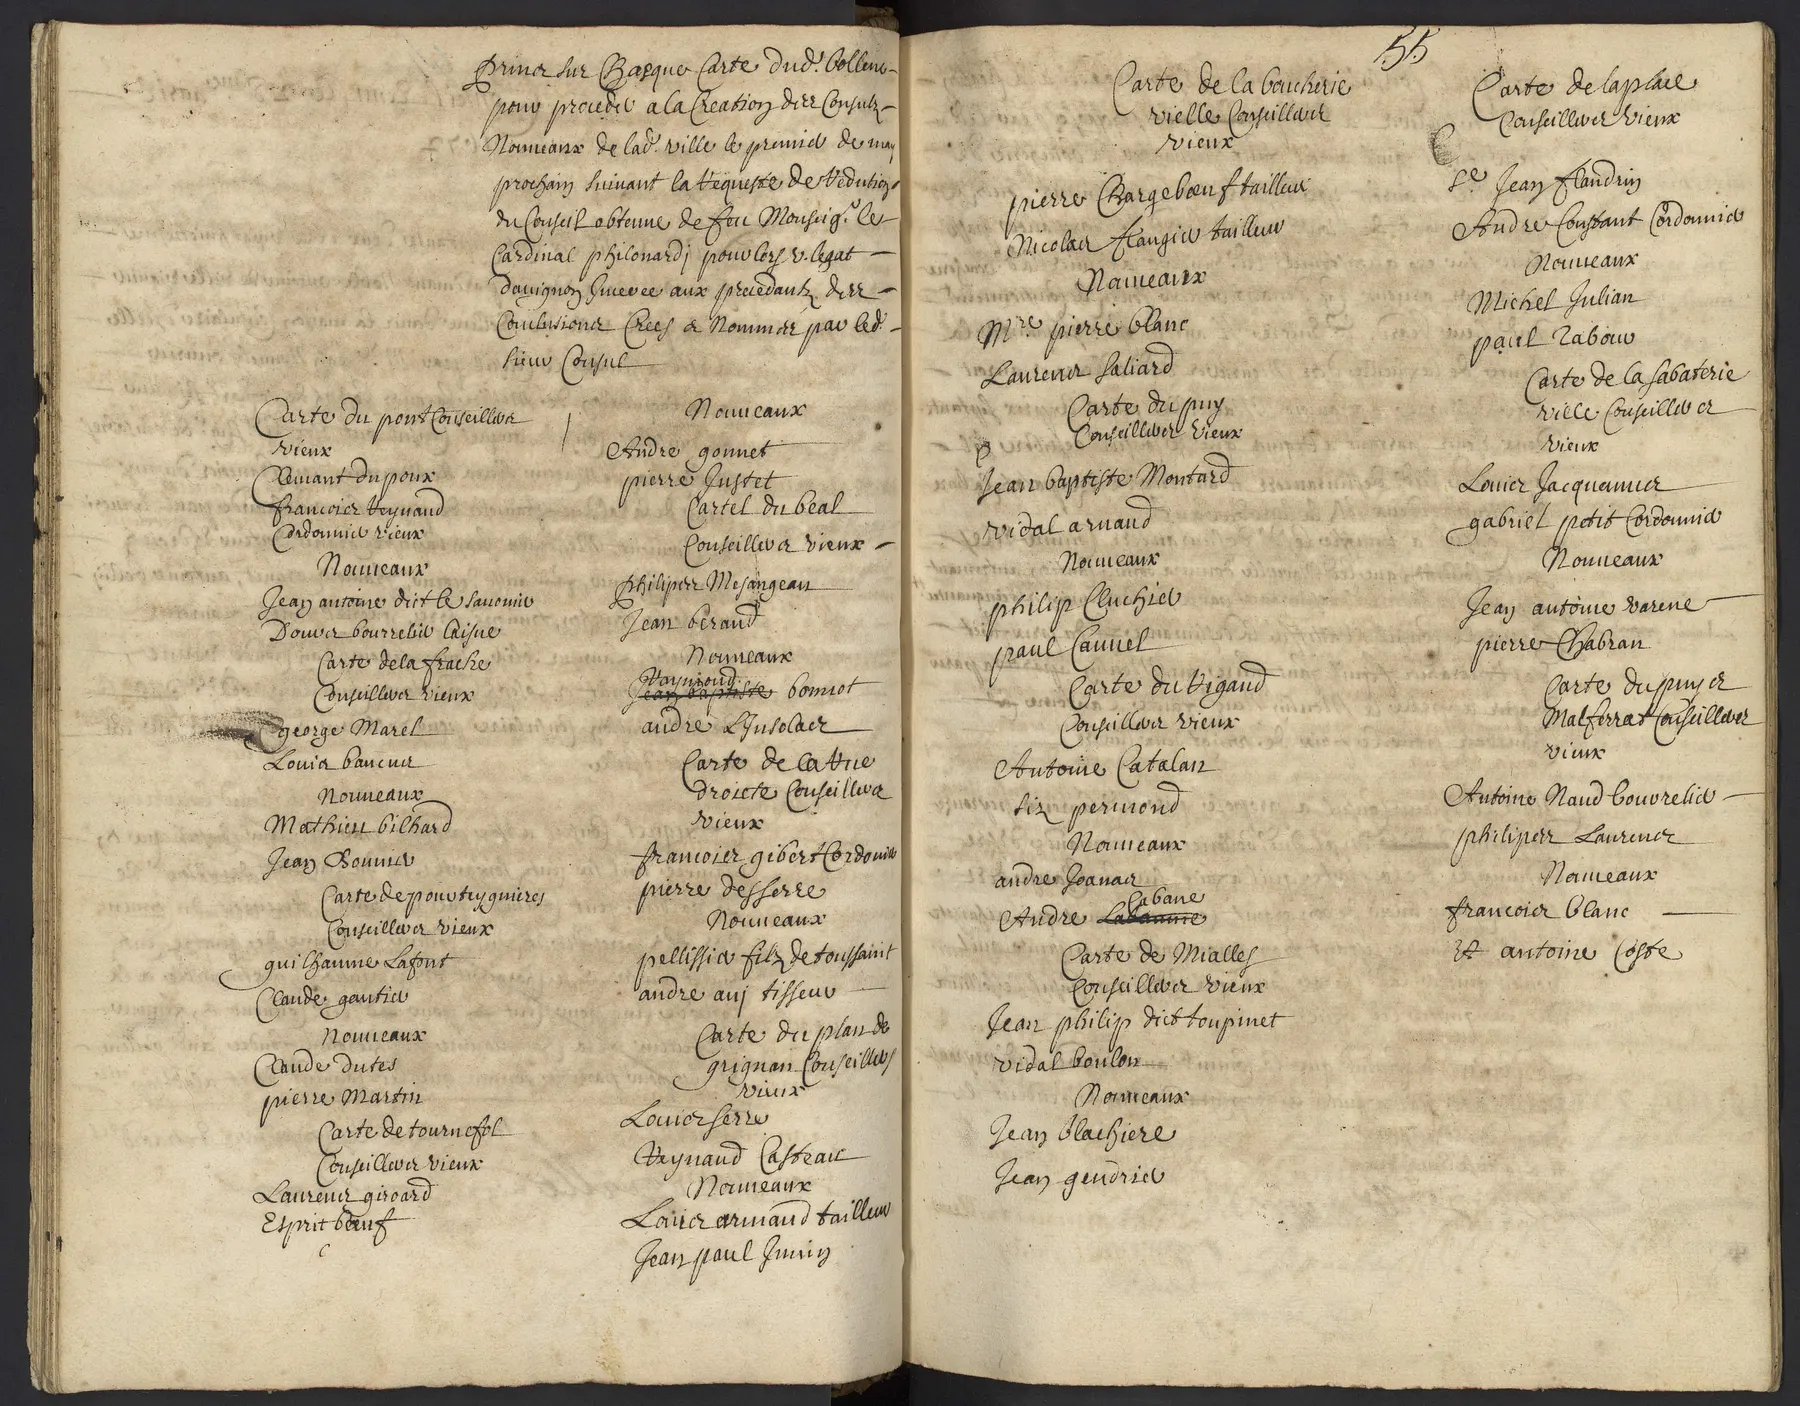 prince sur Chasque Carte dud. bollene
pour proceder a la Creation des Consulz
Nouueaux de lad. ville le premier de may
prochain suiuant la requeste de reduction
du Conseil obtenue de feu Monseigr. le
Cardinal philonardj pour lors v. legat
dauignon Inseree aux precedantz des
Conclusions Crees et Nommes par led.
sieur Consul
Carte du pont Conseillers
vieux
Clemant dupoux
francois reynaud
Cordonnier vieux
Nouueaux
Jean antoine dict le sauoiier
Douuer bourrelier laisne
Carte de la frache
Conseillers vieux
george Marel
Louis bancus
Nouueaux
Mathieu bilhard
Jean Bonnier
Carte de pourteygnieres
Conseillers vieux
guilhaume Lafont
Claude gautier
Nouueaux
Claude dutes
pierre Martin
Carte de tournefol
Conseillers vieux
Laurens giroard
Esprit bœuf
Nouueaux
Andre gonnet
pierre Justet
Cartel du beal
Conseillers vieux
Philippes Mesangeau
Jean beraud
Nouueaux
Raymond
Jean baptiste bonnot
andre L'Insolas
Carte de la rue
droicte Conseillers
vieux
francois gibert Cordonnier
pierre desserre
Nouueaux
pellissier filz de toussaint
andre auj tisseur
Carte du plan de
grignan Conseillers
vieux
Louis serre
Reynaud Casteau
Nouueaux
Louis armand tailleur
Jean paul Juuin
55
Carte de la boucherie
vielle Conseillers
vieux
pierre Chargebœuf tailleur
Nicolas flaugier tailleur
Nouueaux
Mre. pierre blanc
Laurens saliard
Carte du puy
Conseillers vieux
Jean baptiste Montard
vidal arnaud
Nouueaux
philip Cluchier
paul Cauuel
Carte du rigaud
Conseillers vieux
Antoine Catalan
siz permond
Nouueaux
andre Joanas
Cabane
Andre Labaume
Carte de Mialles
Conseillers vieux
Jean philip dict toupinet
vidal boulon
Nouueaux
Jean blachiere
Jean gendrier
Carte de la place
Conseillers vieux
Sr. Jean flandrin
Andre Constant Cordonnier
Nouueaux
Michel Julian
paul rabour
Carte de la sabaterie
vielle Conseillers
vieux
Louis Jacquemus
gabriel petit Cordonnier
Nouueaux
Jean antoine varene
pierre Chabran
Carte du puy et
Malferrat Conseillers
vieux
Antoine Naud bourrelier
philipes Laurens
Nouueaux
francois blanc
et antoine Coste